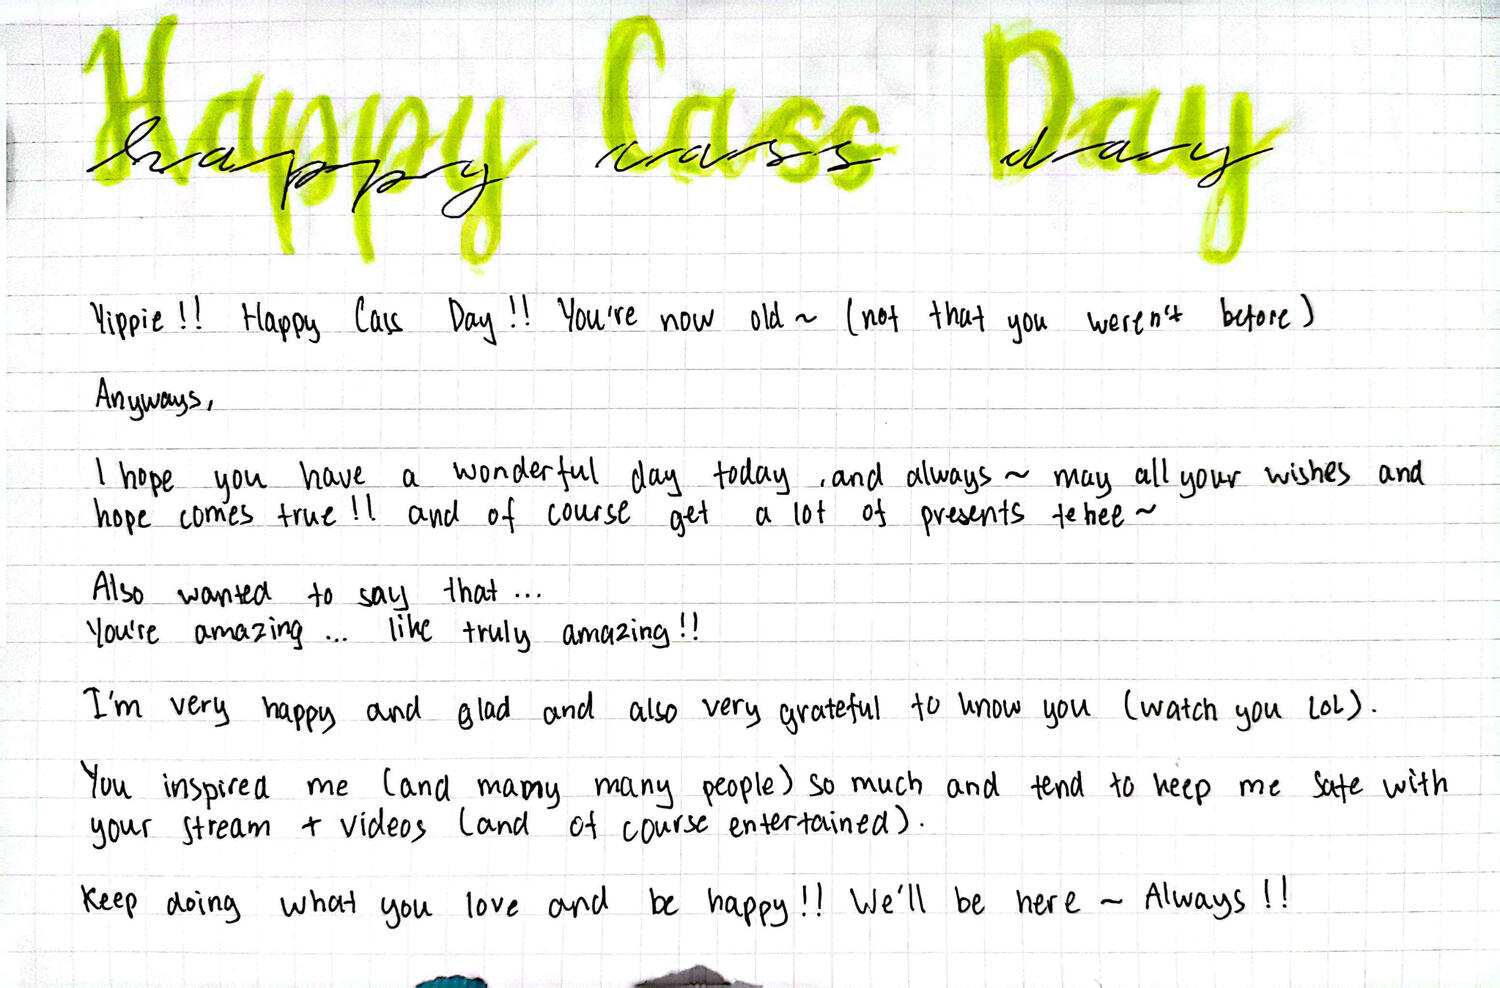 Happy Cass Day
happy cass day
Yippie!! Happy Cass Day!! You're now old ~ (not that you weren't before)
Anyways,
I hope you have a wonderful day today, and always ~ may all your wishes and
hope comes true!! and of course get a lot of presents tehee ~
Also wanted to say that...
You're amazing... like truly amazing!!
I'm very happy and glad and also very grateful to know you (watch you LOL).
You inspired me (and many many people) so much and tend to keep me safe with
your stream + videos (and of course entertained).
Keep doing what you love and be happy!! We'll be here ~ Always!!